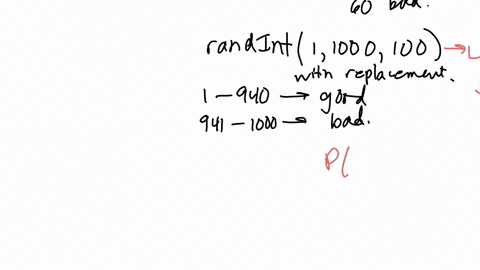 60 bad.
randInt(1,1000,100) → L
with replacement.
1 – 940 → good
941 – 1000 → bad.
P(